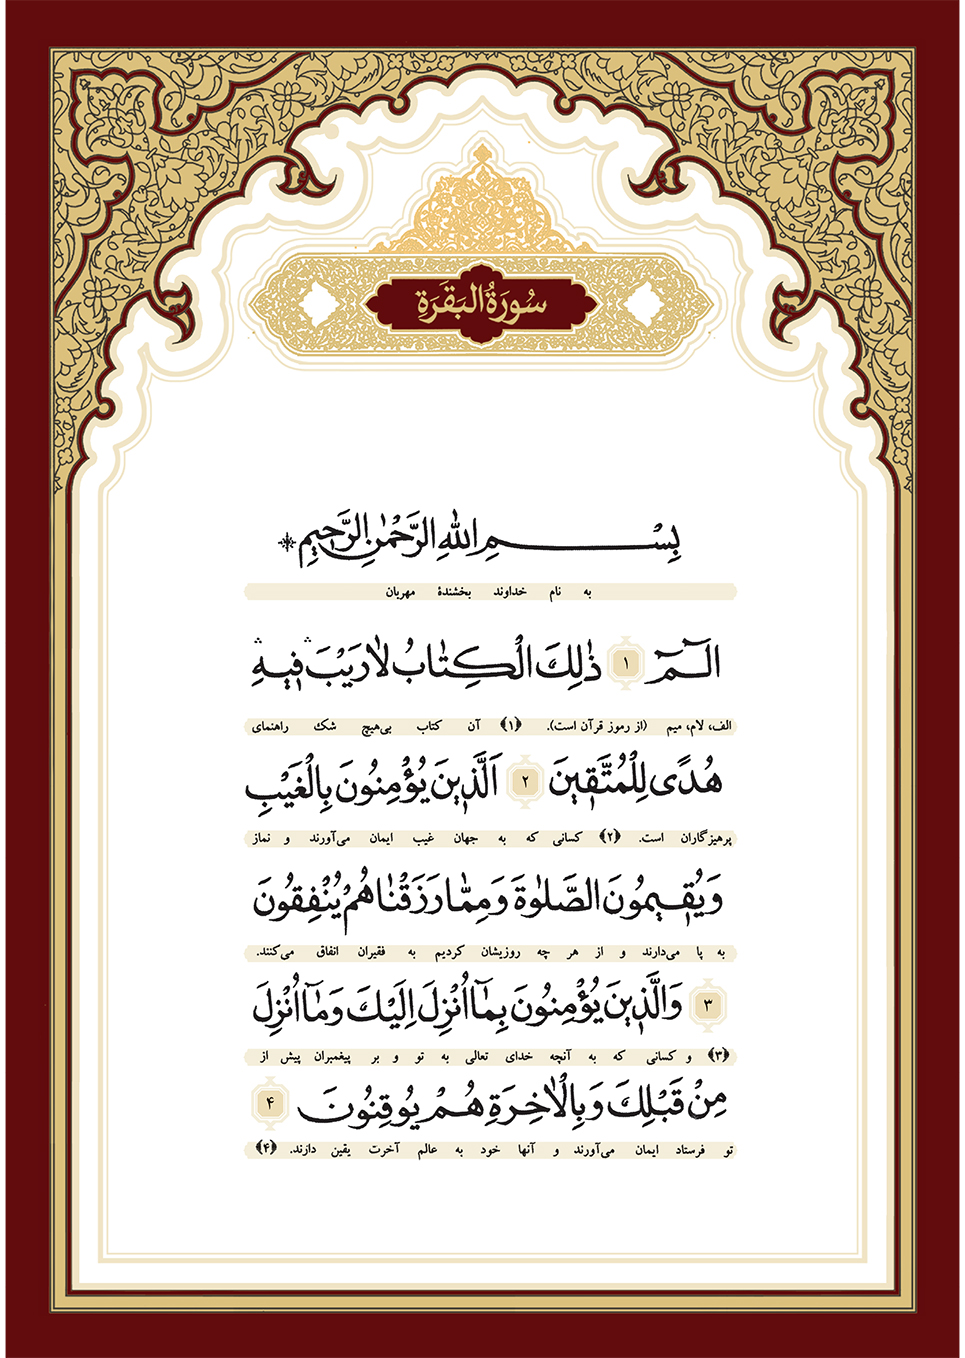 سُورَةُ الْبَقَرَةِ
بِسْمِ اللّٰهِ الرَّحْمٰنِ الرَّحِيمِ
به نام خداوند بخشندهٔ مهربان
الٓـمٓ ﴿۱﴾ ذٰلِكَ الْكِتَابُ لَا رَيْبَ ۛ فِيهِ ۛ
الف، لام، میم (از رموز قرآن است). ﴿۱﴾ آن کتاب بی‌هیچ شک راهنمای
هُدًى لِلْمُتَّقِينَ ﴿۲﴾ اَلَّذِينَ يُؤْمِنُونَ بِالْغَيْبِ
پرهیزگاران است. ﴿۲﴾ کسانی که به جهان غیب ایمان می‌آورند و نماز
وَيُقِيمُونَ الصَّلٰوةَ وَمِمَّا رَزَقْنَاهُمْ يُنْفِقُونَ
به پا می‌دارند و از هر چه روزیشان کردیم به فقیران انفاق می‌کنند.
﴿۳﴾ وَالَّذِينَ يُؤْمِنُونَ بِمَٓا اُنْزِلَ اِلَيْكَ وَمَٓا اُنْزِلَ
﴿۳﴾ و کسانی که به آنچه خدای تعالی به تو و بر پیغمبران پیش از
مِنْ قَبْلِكَ وَبِالْاٰخِرَةِ هُمْ يُوقِنُونَ ﴿۴﴾
تو فرستاد ایمان می‌آورند و آنها خود به عالم آخرت یقین دارند. ﴿۴﴾